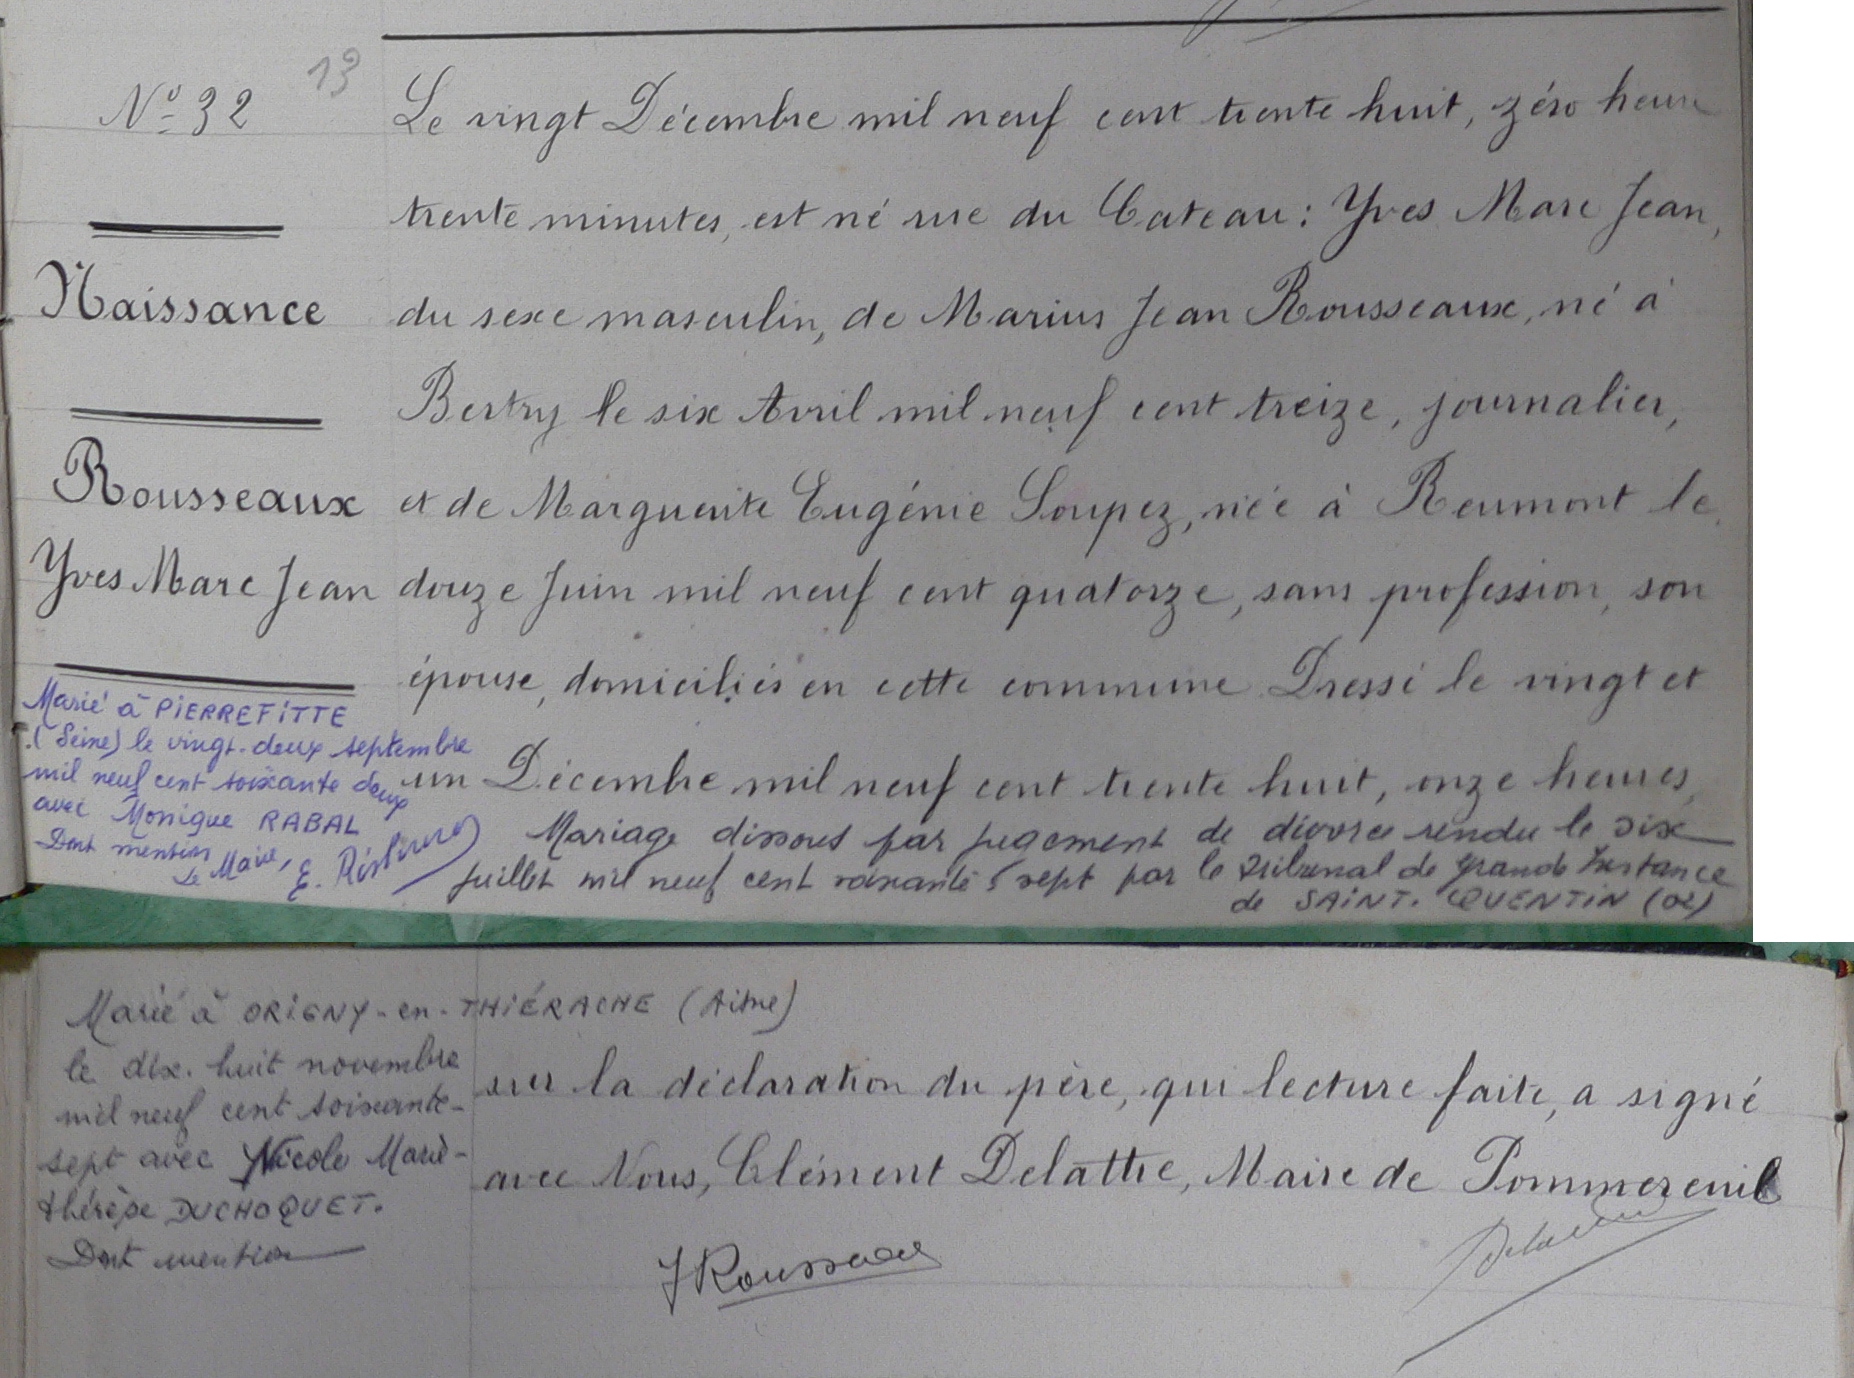 13
Nº 32
Naissance
Rousseaux
Yves Marc Jean
Le vingt Décembre mil neuf cent trente huit, zéro heure
trente minutes, est né rue du Cateau : Yves Marc Jean,
du sexe masculin, de Marius Jean Rousseaux, né à
Bertry le six Avril mil neuf cent treize, journalier,
et de Marguerite Eugénie Soupez, née à Reumont le
douze Juin mil neuf cent quatorze, sans profession, son
épouse, domiciliés en cette commune. Dressé le vingt et
un Décembre mil neuf cent trente huit, onze heures,
Marié à PIERREFITTE
(Seine) le vingt-deux septembre
mil neuf cent soixante deux
avec Monique RABAL
Dont mention
Le Maire, E.
Mariage dissous par jugement de divorce rendu le six
juillet mil neuf cent soixante sept par le Tribunal de Grande Instance
de SAINT-QUENTIN (02)
Marié à ORIGNY-en-THIÉRACHE (Aisne)
le dix-huit novembre
mil neuf cent soixante-
sept avec Nicole Marie-
thérèse DUCHOQUET.
Dont mention
sur la déclaration du père, qui lecture faite, a signé
avec Nous, Clément Delattre, Maire de Pommereuil
J Rousseaux
Delattre